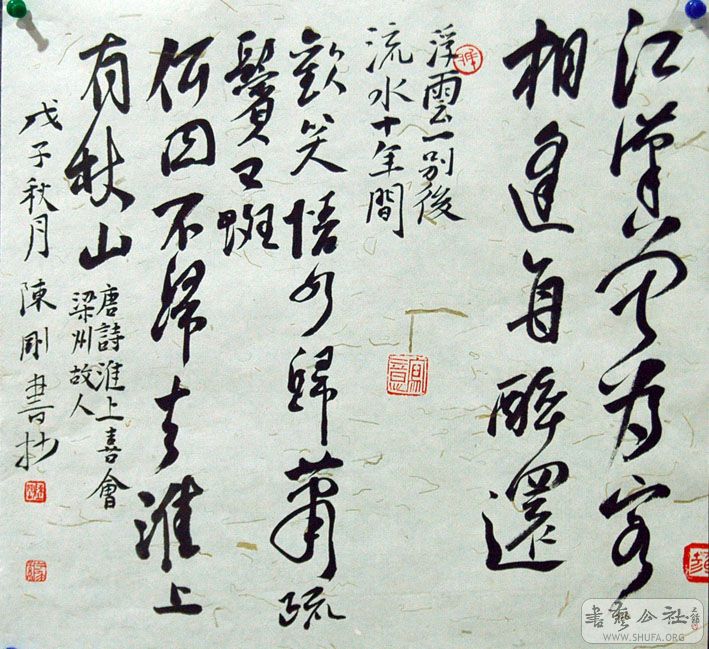 江漢曾为客
相逢每醉還
浮雲一别後
流水十年間
歡笑情如舊蕭疏
鬢已斑
何因不歸去淮上
有秋山
唐詩淮上喜會
梁州故人
戊子秋月 陳剛書抄
寫意
書藝公社
WWW.SHUFA.ORG